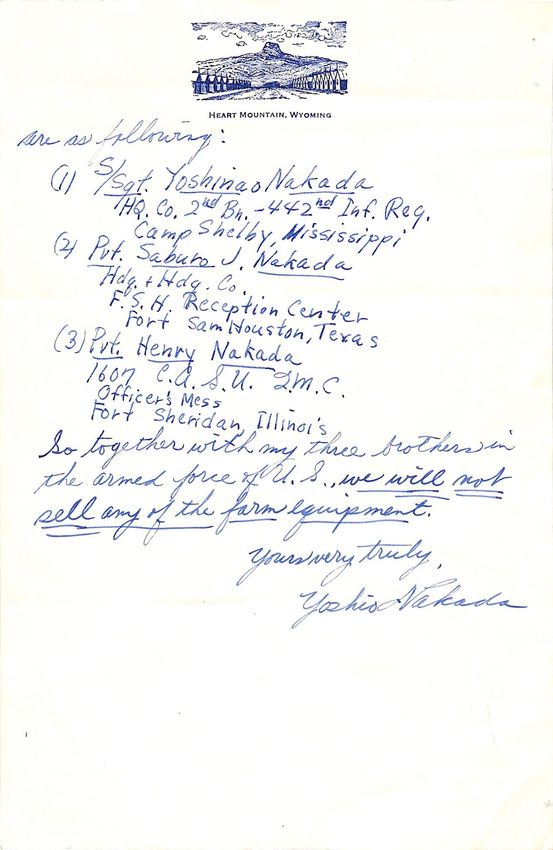 HEART MOUNTAIN, WYOMING
are as following:
(1) S/Sgt. Yoshinao Nakada
HQ. Co. 2nd Bn. - 442nd Inf. Reg.
Camp Shelby, Mississippi
(2) Pvt. Saburo J. Nakada
Hdq. + Hdq. Co.
F. S. H. Reception Center
Fort Sam Houston, Texas
(3) Pvt. Henry Nakada
1607 C.A.S.U. Q.M.C.
Officer's Mess
Fort Sheridan, Illinoi's
So together with my three brothers in
the armed force of U. S., we will not
sell any of the farm equipment.
Yours very truly,
Yoshio Nakada